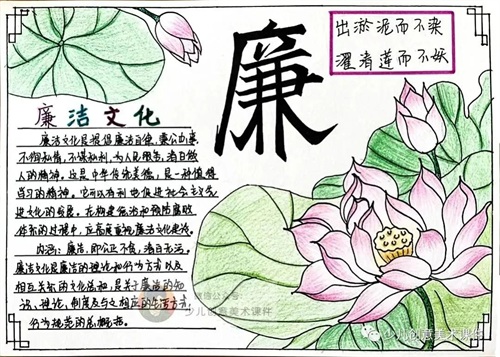 廉
出淤泥而不染
濯清莲而不妖
廉洁文化
廉洁文化是提倡廉洁自律、秉公办事、
不徇私情、不谋私利、为人民服务、清白做
人的精神。这是中华传统美德，是一种值得
学习的精神。它可以有利也促进社会主义先
进文化的发展。在构建惩治和预防腐败
体系的过程中，应高度重视廉洁文化建设。
内涵：廉洁，即公正不贪，清白无污。
廉洁文化是廉洁的理论和行为方式以及
相互关系的文化总和，是关于廉洁的知
识、理论、制度及与之相应的生活方式、
行为规范的总概括。
少儿创意美术课件
少儿创意美术课件